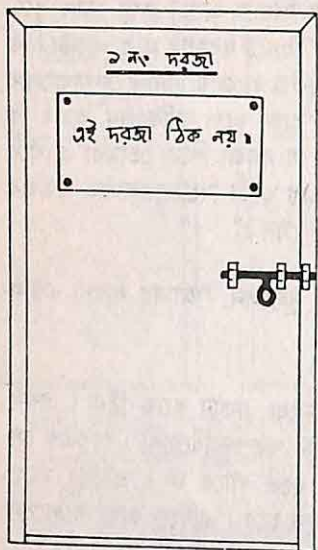 ১ নং দরজা
এই দরজা ঠিক নয়।